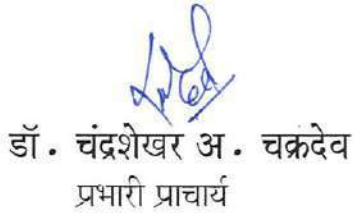 डॉ. चंद्रशेखर अ. चक्रदेव
प्रभारी प्राचार्य